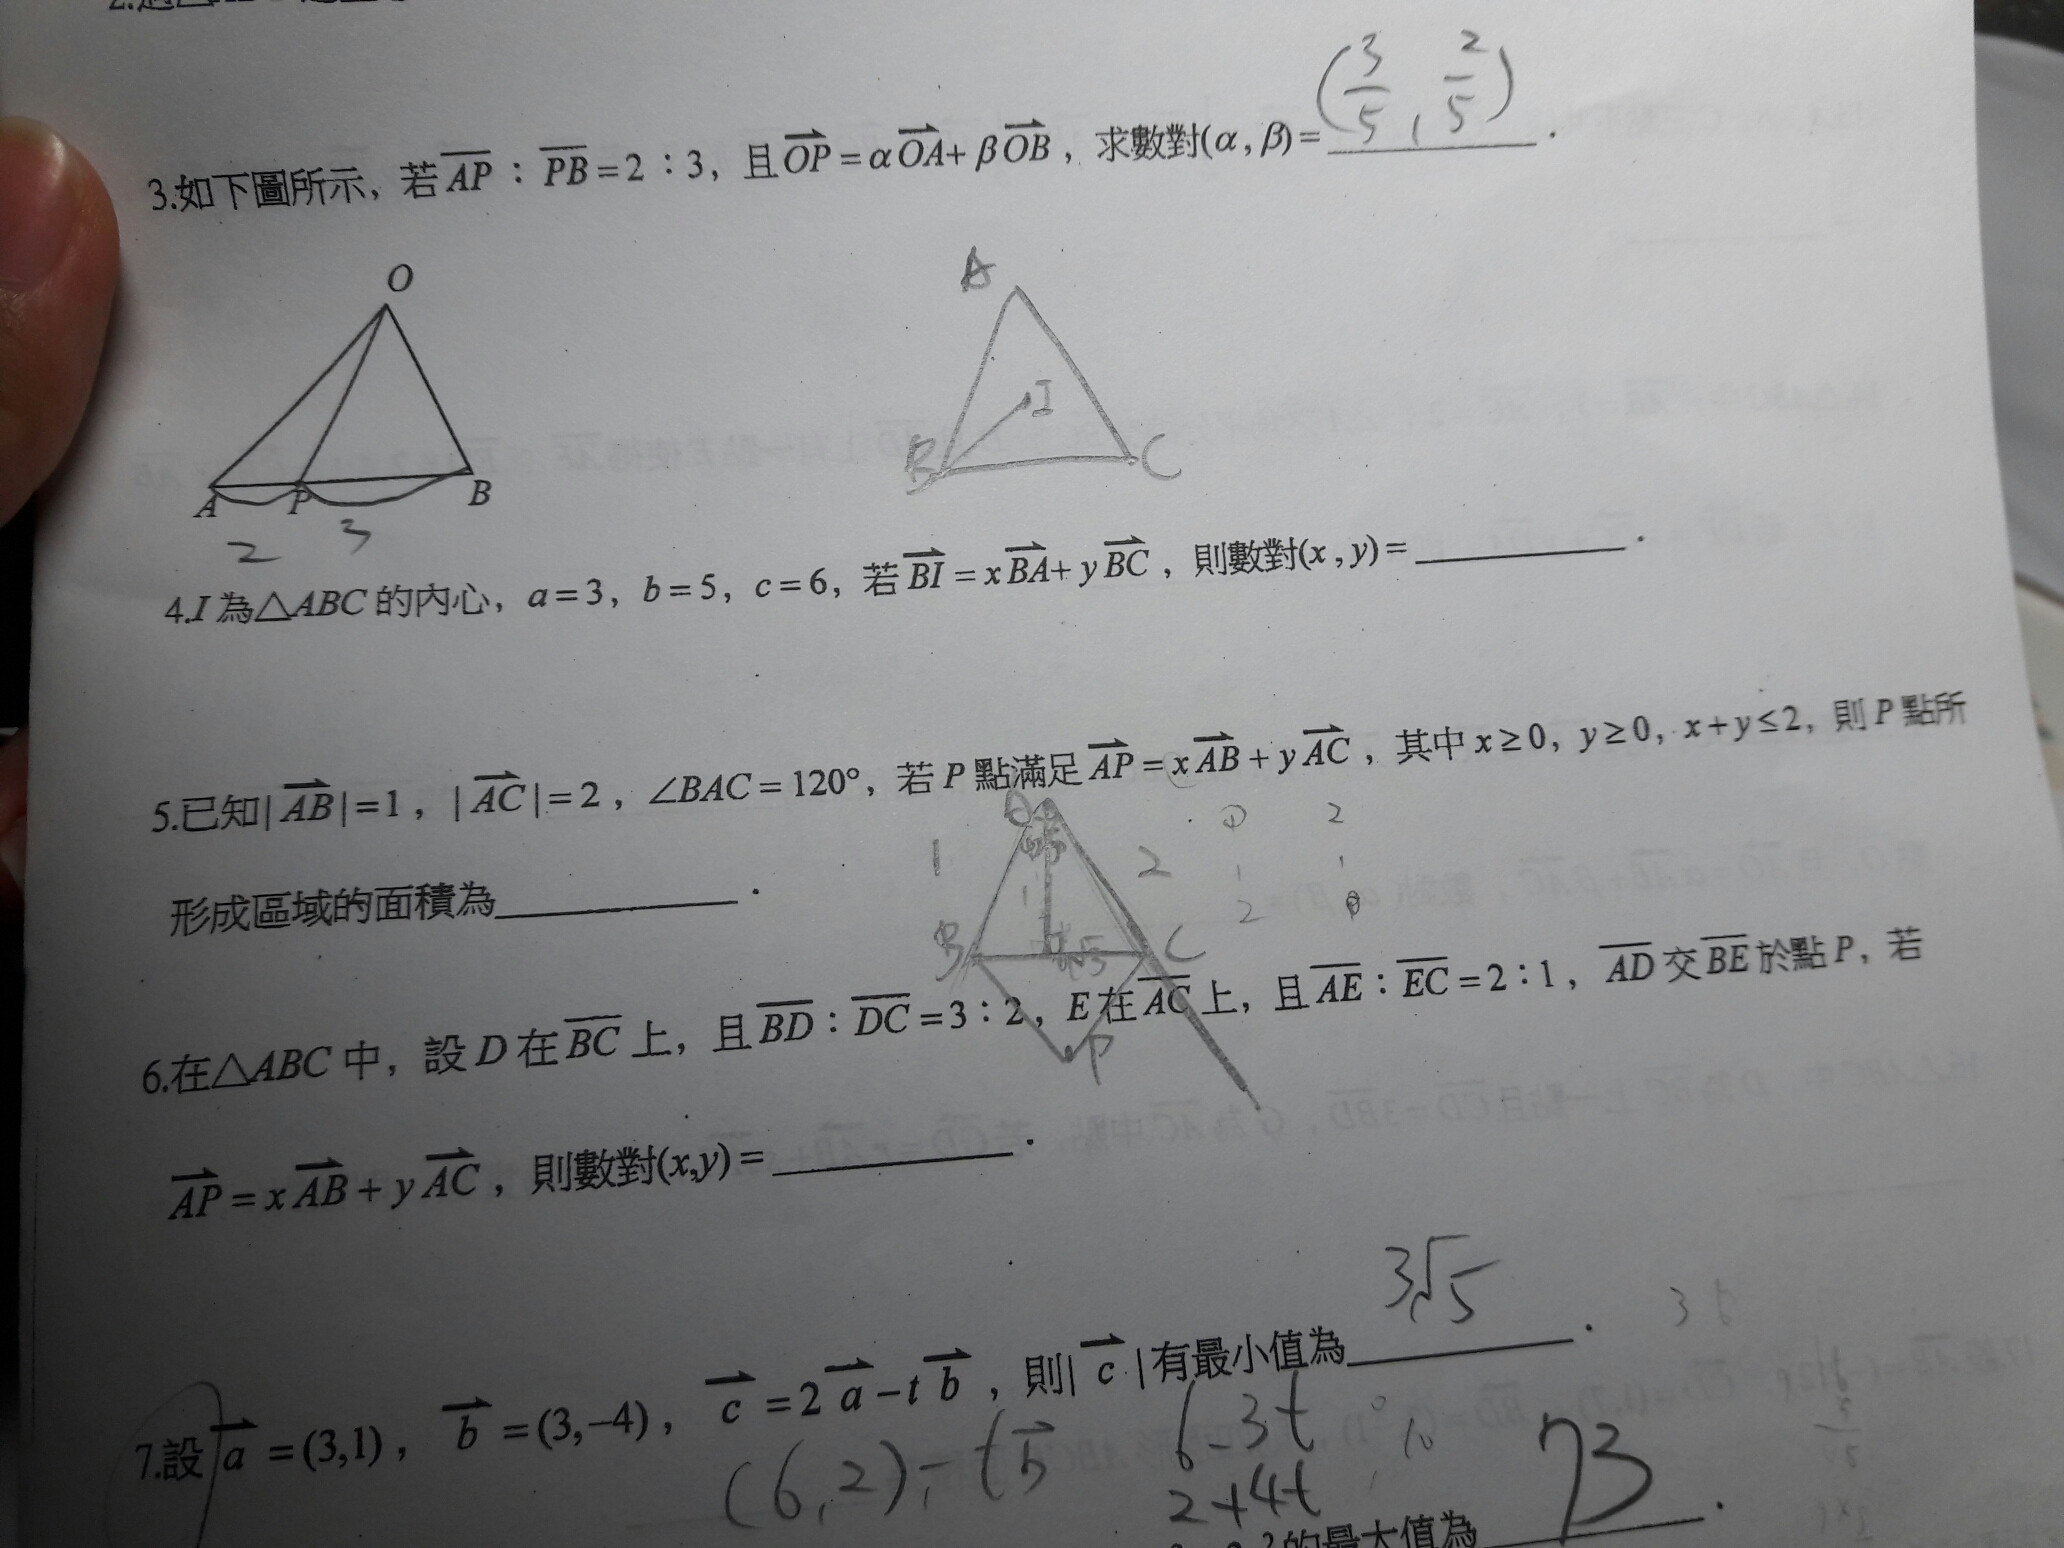 3.如下圖所示，若AP：PB=2：3，且OP=αOA+βOB，求數對(α,β)=(3/5, 2/5).
O
A P B
2 3
A
I
B C
4.I為△ABC的內心，a=3，b=5，c=6，若BI=xBA+yBC，則數對(x,y)=________.
5.已知|AB|=1，|AC|=2，∠BAC=120°，若P點滿足AP=xAB+yAC，其中x≥0，y≥0，x+y≤2，則P點所
形成區域的面積為________.
1 2
B C
P
6.在△ABC中，設D在BC上，且BD：DC=3：2，E在AC上，且AE：EC=2：1，AD交BE於點P，若
AP=xAB+yAC，則數對(x,y)=________.
7.設a=(3,1)，b=(3,−4)，c=2a−tb，則|c|有最小值為3√5.
(6,2)-tb
6-3t
2+4t
的最大值為73.